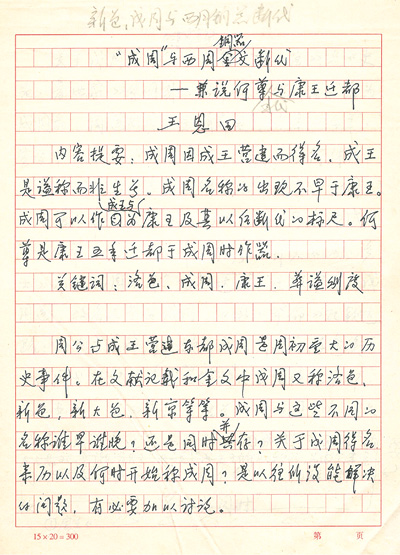 新邑、成周与西周铜器断代
铜器
"成周"与西周金文断代
——兼说何尊与康王迁都
王恩田
内容提要:成周因成王营建而得名。成王
是谥称而非生号。成周名称的出现不早于康王。
成王与
成周可以作为康王及其以后断代的标尺。何
尊是康王五年迁都于成周时作器。
关键词:洛邑、成周、康王、葬谥制度
周公与成王营建东都成周是周初重大的历
史事件。在文献记载和金文中成周又称洛邑、
新邑、新大邑、新京等等。成周与这些不同的
名称谁早谁晚?还是同时并存?关于成周得名
来历以及何时开始称成周?是以往所没能解决
的问题,有必要加以讨论。
15×20=300 第 页